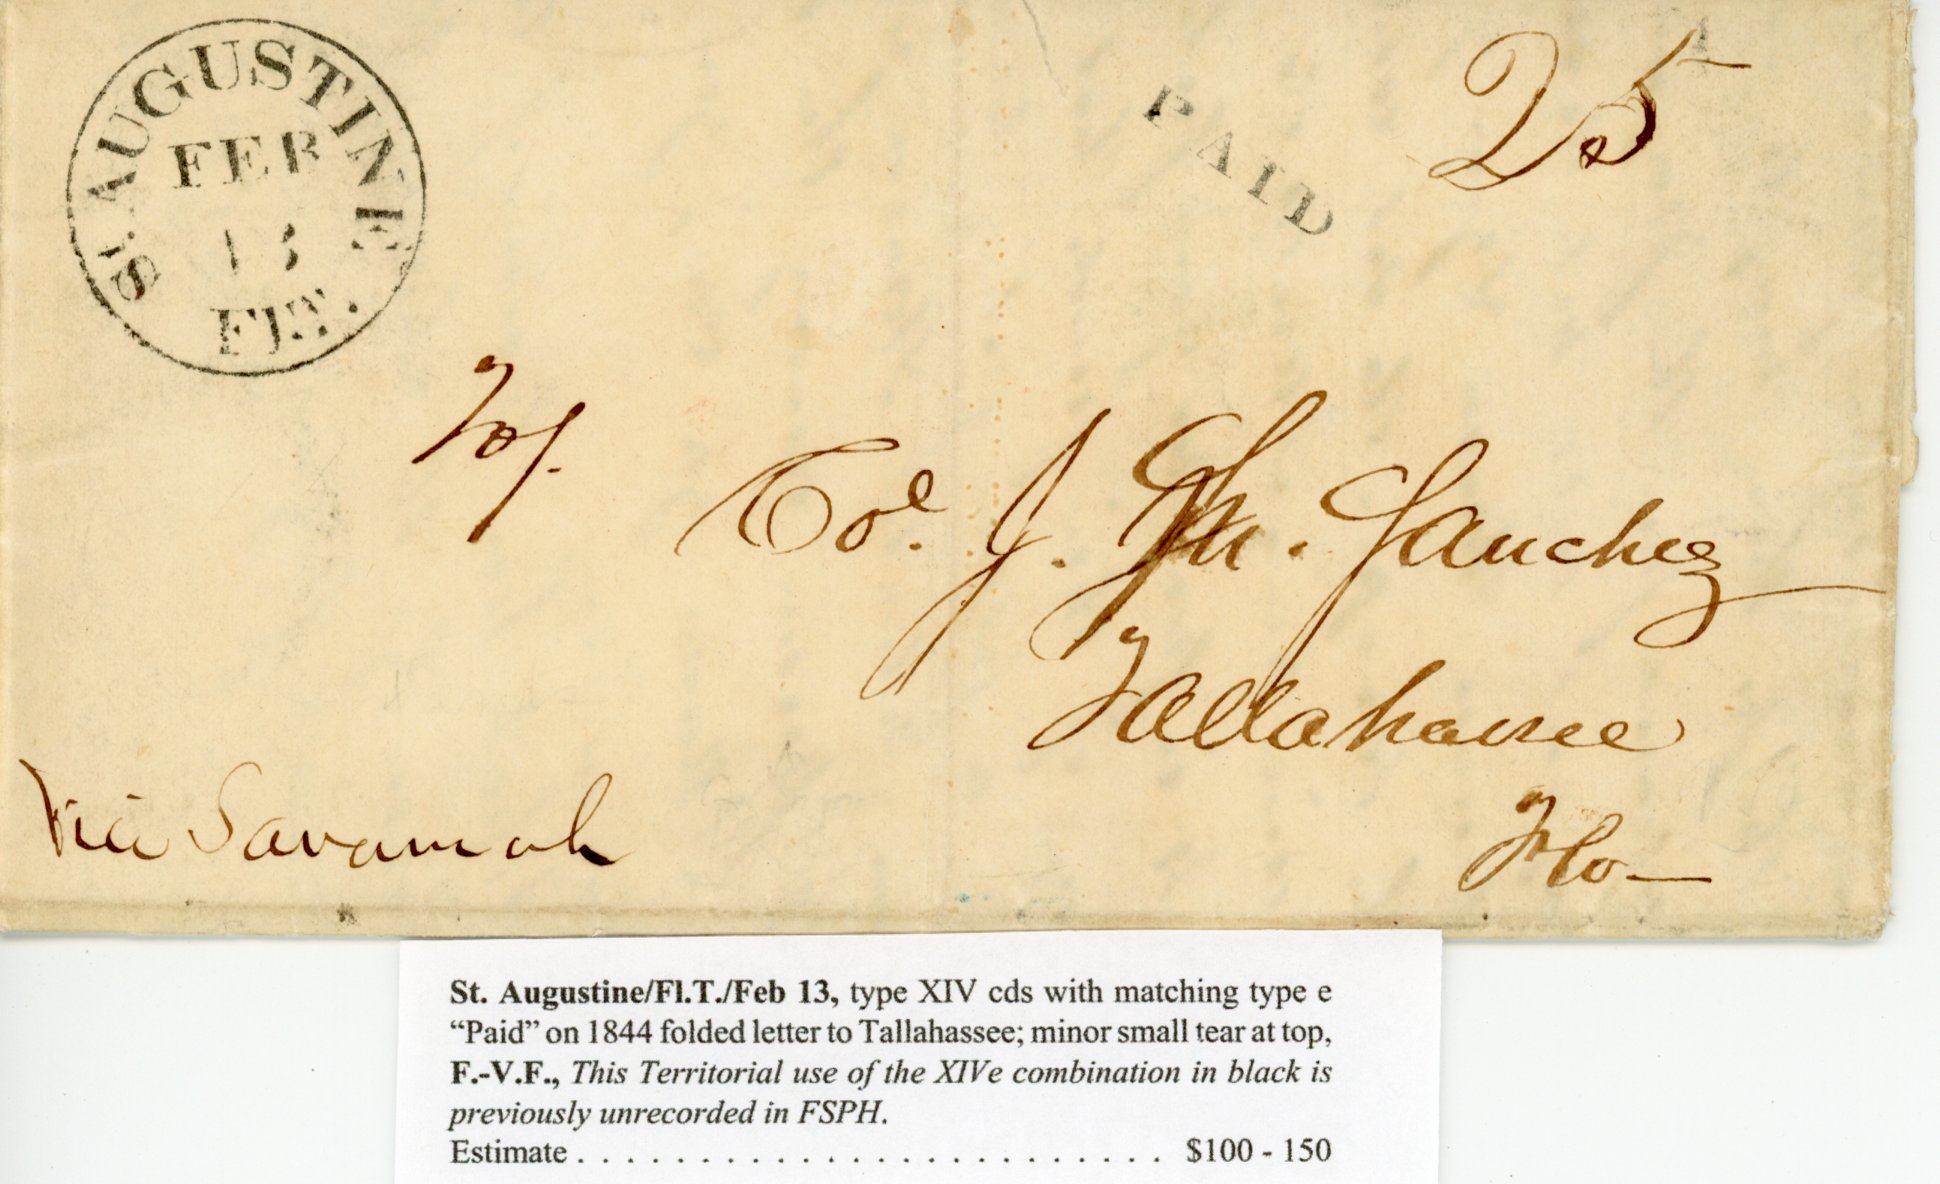 St. AUGUSTINE
FEB
13
Fl.T.
PAID
25
To/.
Col. J. M. Sanchez
Tallahassee
Flo—
Via Savannah
St. Augustine/Fl.T./Feb 13, type XIV cds with matching type e
“Paid” on 1844 folded letter to Tallahassee; minor small tear at top,
F.-V.F., This Territorial use of the XIVe combination in black is
previously unrecorded in FSPH.
Estimate . . . . . . . . . . . . . . . . . . . . . . . . $100 - 150